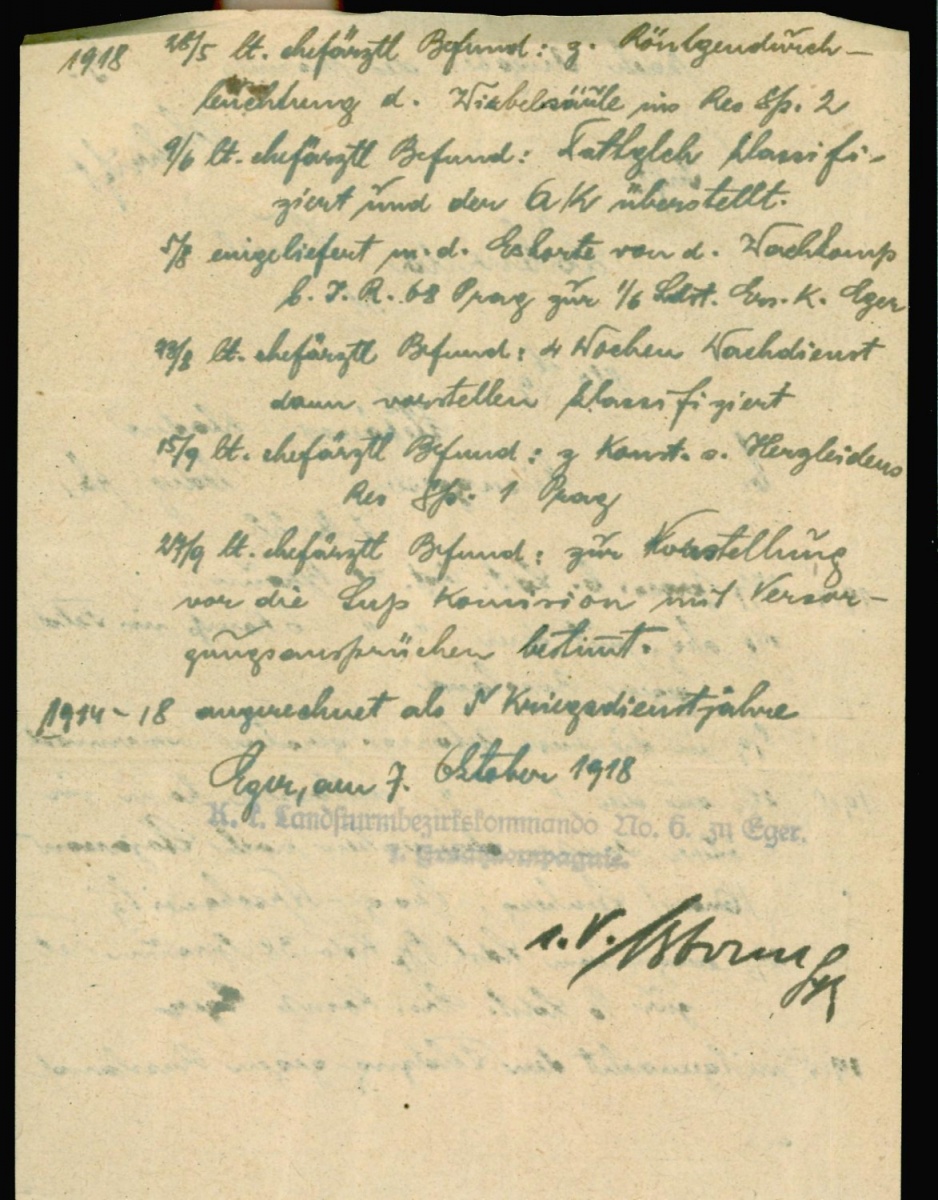 1918 28/5 lt. chefärztl Befund: z. Röntgendurch-
leuchtung d. Wirbelsäule ins Res Sp. 2
9/6 lt. chefärztl Befund: klassifi-
ziert und der überstellt.
5/8 eingeliefert m. d. Eskorte von d. Wachkomp
b. I. R. 68 Prag zur 1/6 Ldst. Ers. K. Eger
lt. chefärztl Befund: 4 Wochen Wachdienst
dann vorstellen klassifiziert
15/9 lt. chefärztl Befund: z Konst. s. Herzleidens
Res Sp. 1 Prag
27/9 lt. chefärztl Befund: zur Vorstellung
vor die Sup Komision mit Versor-
gungsansprüchen bestimt.
1914-18 angerechnet als Kriegsdienstjahre
Eger, am 7. Oktober 1918
K. k. Landsturmbezirkskommando No. 6. zu Eger.
i. V.